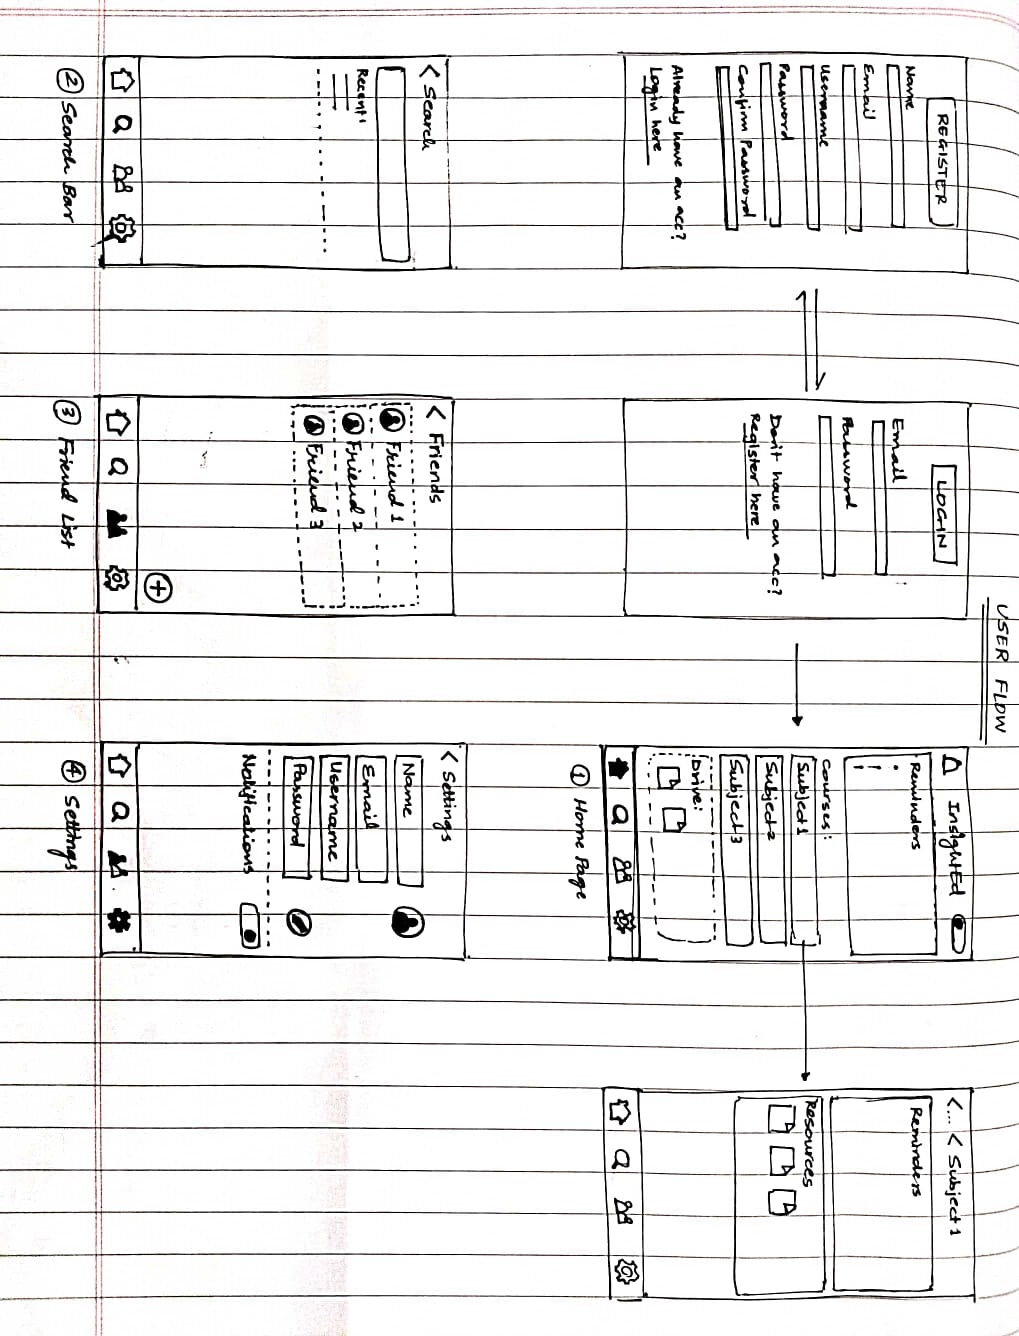 USER FLOW
REGISTER
Name
Email
Username
Password
Confirm Password
Already have an acc?
Login here
LOGIN
Email
Password
Don't have an acc?
Register here
InsightEd
Reminders
Courses:
Subject 1
Subject 2
Subject 3
Drive:
① Home Page
<... < Subject 1
Reminders
Resources
< Search
Recent:
② Search Bar
< Friends
Friend 1
Friend 2
Friend 3
③ Friend List
< Settings
Name
Email
Username
Password
Notifications
④ Settings